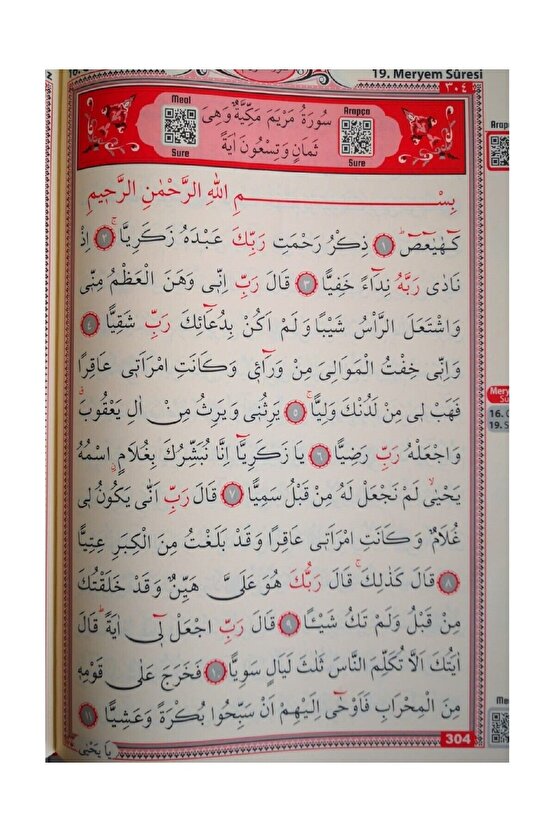 19. Meryem Sûresi
٣٠٤
Meal
Sure
سُورَةُ مَرْيَمَ مَكِّيَّةٌ وَهِيَ
ثَمَانٍ وَتِسْعُونَ اٰيَةً
Arapça
Sure
بِسْمِ اللّٰهِ الرَّحْمٰنِ الرَّحٖيمِ
كٓهٰيٰعٓصٓۜ ﴿١﴾ ذِكْرُ رَحْمَتِ رَبِّكَ عَبْدَهُ زَكَرِيَّاۚ ﴿٢﴾ اِذْ
نَادٰى رَبَّهُ نِدَٓاءً خَفِيًّا ﴿٣﴾ قَالَ رَبِّ اِنّٖي وَهَنَ الْعَظْمُ مِنّٖي
وَاشْتَعَلَ الرَّأْسُ شَيْبًا وَلَمْ اَكُنْ بِدُعَٓائِكَ رَبِّ شَقِيًّا ﴿٤﴾
وَاِنّٖي خِفْتُ الْمَوَالِيَ مِنْ وَرَٓاءٖي وَكَانَتِ امْرَاَتٖي عَاقِرًا
فَهَبْ لٖي مِنْ لَدُنْكَ وَلِيًّاۙ ﴿٥﴾ يَرِثُنٖي وَيَرِثُ مِنْ اٰلِ يَعْقُوبَۗ
وَاجْعَلْهُ رَبِّ رَضِيًّا ﴿٦﴾ يَا زَكَرِيَّٓا اِنَّا نُبَشِّرُكَ بِغُلَامٍۨ اسْمُهُ
يَحْيٰىۙ لَمْ نَجْعَلْ لَهُ مِنْ قَبْلُ سَمِيًّا ﴿٧﴾ قَالَ رَبِّ اَنّٰى يَكُونُ لٖي
غُلَامٌ وَكَانَتِ امْرَاَتٖي عَاقِرًا وَقَدْ بَلَغْتُ مِنَ الْكِبَرِ عِتِيًّا
﴿٨﴾ قَالَ كَذٰلِكَۚ قَالَ رَبُّكَ هُوَ عَلَيَّ هَيِّنٌ وَقَدْ خَلَقْتُكَ
مِنْ قَبْلُ وَلَمْ تَكُ شَيْـًٔا ﴿٩﴾ قَالَ رَبِّ اجْعَلْ لٖٓي اٰيَةًۜ قَالَ
اٰيَتُكَ اَلَّا تُكَلِّمَ النَّاسَ ثَلٰثَ لَيَالٍ سَوِيًّا ﴿١٠﴾ فَخَرَجَ عَلٰى قَوْمِهٖ
مِنَ الْمِحْرَابِ فَاَوْحٰٓى اِلَيْهِمْ اَنْ سَبِّحُوا بُكْرَةً وَعَشِيًّا ﴿١١﴾
304
يَا يَحْيٰى